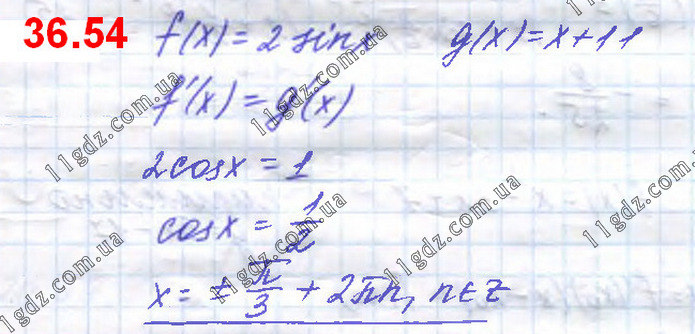 36.54 f(x) = 2 sin x g(x) = x + 11
f'(x) = g'(x)
2cosx = 1
cosx = 1/2
x = ± π/3 + 2πn, n∈Z
11gdz.com.ua
11gdz.com.ua
11gdz.com.ua
11gdz.com.ua
11gdz.com.ua
11gdz.com.ua
11gdz.com.ua